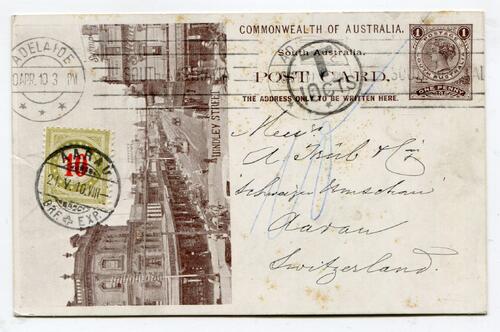 COMMONWEALTH OF AUSTRALIA.
South Australia.
POST CARD.
THE ADDRESS ONLY TO BE WRITTEN HERE.
POSTAGE
1 1
SOUTH AUSTRALIA
ONE PENNY
ADELAIDE
10 APR. 10 3 PM
T
10CTS
HINDLEY STREET
10
AARAU
21.V.10.VIII
BRF. EXP.
A. Trüb & Cie
Aarau
Switzerland.